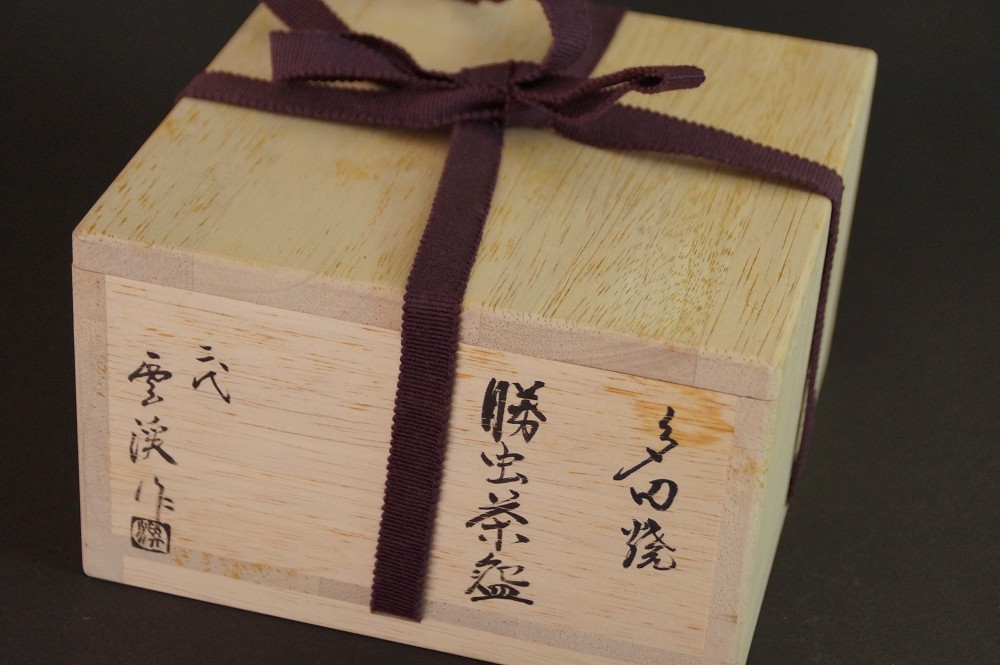 多田焼
勝虫茶盌
二代
雲渓作